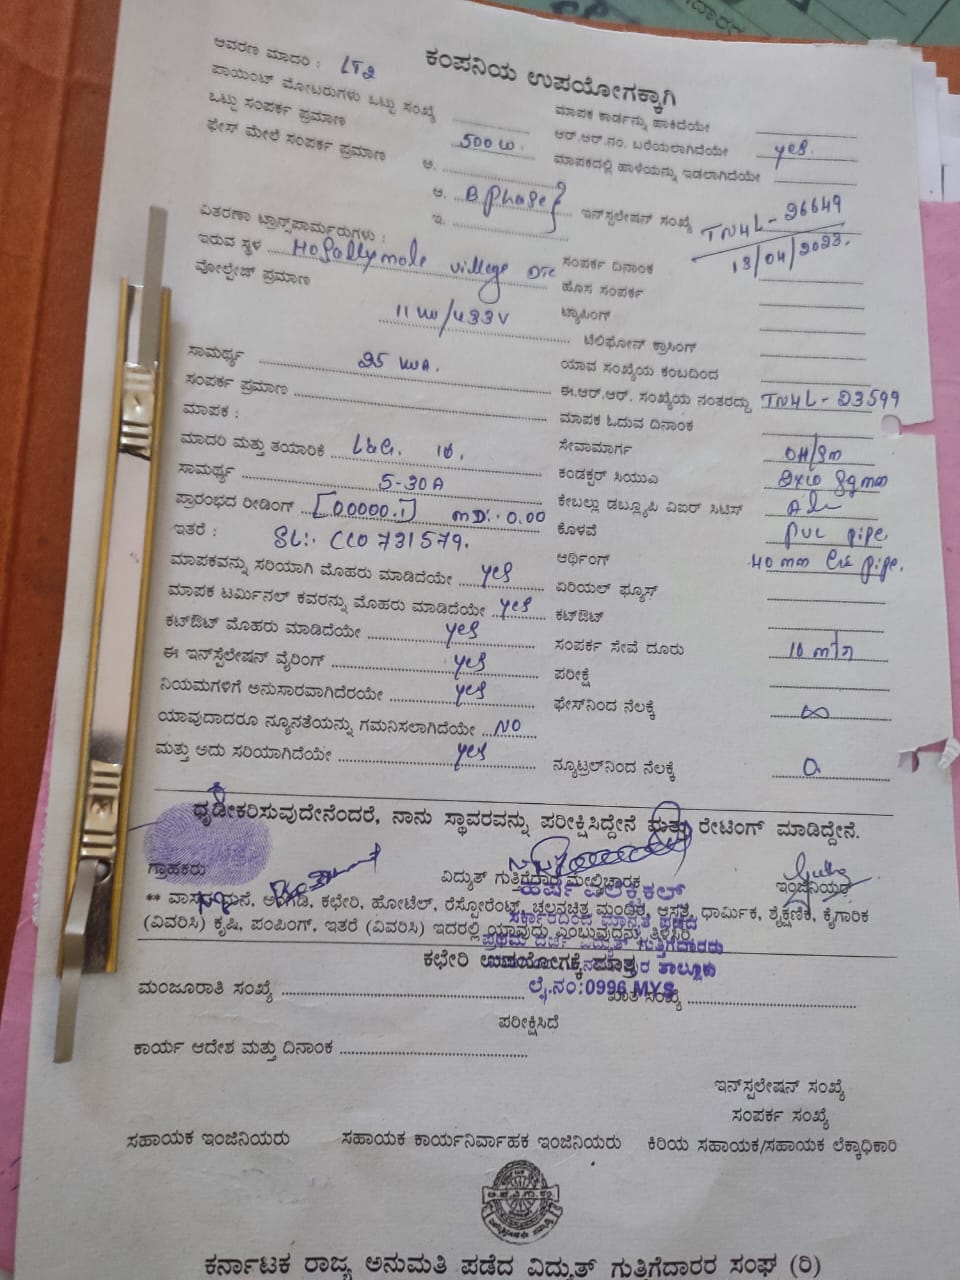 ಕಂಪನಿಯ ಉಪಯೋಗಕ್ಕಾಗಿ
ಆವರಣ ಮಾದರಿ : LT2
ಪಾಯಿಂಟ್ ಮೋಟರುಗಳು ಒಟ್ಟು ಸಂಖ್ಯೆ
ಮಾಪಕ ಕಾರ್ಡನ್ನು ಹಾಕಿದೆಯೇ
ಒಟ್ಟು ಸಂಪರ್ಕ ಪ್ರಮಾಣ 500 W.
ಆರ್.ಆರ್.ನಂ. ಬರೆಯಲಾಗಿದೆಯೇ yes.
ಫೇಸ್ ಮೇಲೆ ಸಂಪರ್ಕ ಪ್ರಮಾಣ ಅ.
ಮಾಪಕದಲ್ಲಿ ಹಾಳೆಯನ್ನು ಇಡಲಾಗಿದೆಯೇ
ಆ. B Phase
ಇನ್‌ಸ್ಟಲೇಷನ್ ಸಂಖ್ಯೆ TN4L - 26649
ಇ.
ವಿತರಣಾ ಟ್ರಾನ್ಸ್‌ಫಾರ್ಮರುಗಳು :
ಸಂಪರ್ಕ ದಿನಾಂಕ 13/04/2023.
ಇರುವ ಸ್ಥಳ Hosallymole village
ಹೊಸ ಸಂಪರ್ಕ
ವೋಲ್ಟೇಜ್ ಪ್ರಮಾಣ 11 KV/433V
ಟ್ಯಾಪಿಂಗ್
ಟೆಲಿಫೋನ್ ಕ್ರಾಸಿಂಗ್
ಸಾಮರ್ಥ್ಯ 25 KVA.
ಯಾವ ಸಂಖ್ಯೆಯ ಕಂಬದಿಂದ
ಸಂಪರ್ಕ ಪ್ರಮಾಣ
ಈ.ಆರ್.ಆರ್. ಸಂಖ್ಯೆಯ ನಂತರದ್ದು TN4L - 23599
ಮಾಪಕ :
ಮಾಪಕ ಓದುವ ದಿನಾಂಕ
ಮಾದರಿ ಮತ್ತು ತಯಾರಿಕೆ L&G. 1Φ.
ಸೇವಾಮಾರ್ಗ OH/Sm
ಸಾಮರ್ಥ್ಯ 5-30A
ಕಂಡಕ್ಟರ್ ಸಿಯುವಿ 2x10 sqmm
ಪ್ರಾರಂಭದ ರೀಡಿಂಗ್ [00000.1] MD:- 0.00
ಕೇಬಲ್ಲು ಡಬ್ಲ್ಯೂಪಿ ವಿಐರ್ ಸಿಟಿಸ್
ಇತರೆ : SL:- CC0 731579.
ಕೊಳವೆ PVC pipe
ಮಾಪಕವನ್ನು ಸರಿಯಾಗಿ ಮೊಹರು ಮಾಡಿದೆಯೇ yes
ಆರ್ಥಿಂಗ್ 40 mm pipe.
ಮಾಪಕ ಟರ್ಮಿನಲ್ ಕವರನ್ನು ಮೊಹರು ಮಾಡಿದೆಯೇ yes
ಏರಿಯಲ್ ಫ್ಯೂಸ್
ಕಟ್‌ಔಟ್ ಮೊಹರು ಮಾಡಿದೆಯೇ yes
ಕಟ್‌ಔಟ್
ಈ ಇನ್‌ಸ್ಟೆಲೇಷನ್ ವೈರಿಂಗ್ yes
ಸಂಪರ್ಕ ಸೇವೆ ದೂರು 10
ನಿಯಮಗಳಿಗೆ ಅನುಸಾರವಾಗಿದೆರೆಯೇ yes
ಪರೀಕ್ಷೆ
ಯಾವುದಾದರೂ ನ್ಯೂನತೆಯನ್ನು ಗಮನಿಸಲಾಗಿದೆಯೇ NO
ಫೇಸ್‌ನಿಂದ ನೆಲಕ್ಕೆ ∞
ಮತ್ತು ಅದು ಸರಿಯಾಗಿದೆಯೇ yes
ನ್ಯೂಟ್ರಲ್‌ನಿಂದ ನೆಲಕ್ಕೆ 0
ಧೃಡೀಕರಿಸುವುದೇನೆಂದರೆ, ನಾನು ಸ್ಥಾವರವನ್ನು ಪರೀಕ್ಷಿಸಿದ್ದೇನೆ ಮತ್ತು ರೇಟಿಂಗ್ ಮಾಡಿದ್ದೇನೆ.
ಗ್ರಾಹಕರು ವಿದ್ಯುತ್ ಗುತ್ತಿಗೆದಾರ ಮೇಲ್ವಿಚಾರಕ ಇಂಜಿನಿಯರ್
** ವಾಸದ ಮನೆ, ಅಂಗಡಿ, ಕಛೇರಿ, ಹೋಟೆಲ್, ರೆಸ್ಟೋರೆಂಟ್, ಚಲನಚಿತ್ರ ಮಂದಿರ, ಆಸ್ಪತ್ರೆ, ಧಾರ್ಮಿಕ, ಶೈಕ್ಷಣಿಕ, ಕೈಗಾರಿಕ
(ವಿವರಿಸಿ) ಕೃಷಿ, ಪಂಪಿಂಗ್, ಇತರೆ (ವಿವರಿಸಿ) ಇದರಲ್ಲಿ ಯಾವುದು ಎಂಬುವುದನ್ನು ತಿಳಿಸಿರಿ.
ಪ್ರಥಮ ದರ್ಜೆ ವಿದ್ಯುತ್ ಗುತ್ತಿಗೆದಾರರು
ಕಛೇರಿ ಉಪಯೋಗಕ್ಕೆ ಮಾತ್ರ
ಲೈ.ನಂ:0996 MYS
ಮಂಜೂರಾತಿ ಸಂಖ್ಯೆ ಖಾತೆ ಸಂಖ್ಯೆ
ಪರೀಕ್ಷಿಸಿದೆ
ಕಾರ್ಯ ಆದೇಶ ಮತ್ತು ದಿನಾಂಕ
ಇನ್‌ಸ್ಪಲೇಷನ್ ಸಂಖ್ಯೆ
ಸಂಪರ್ಕ ಸಂಖ್ಯೆ
ಸಹಾಯಕ ಇಂಜಿನಿಯರು ಸಹಾಯಕ ಕಾರ್ಯನಿರ್ವಾಹಕ ಇಂಜಿನಿಯರು ಕಿರಿಯ ಸಹಾಯಕ/ಸಹಾಯಕ ಲೆಕ್ಕಾಧಿಕಾರಿ
ಕರ್ನಾಟಕ ರಾಜ್ಯ ಅನುಮತಿ ಪಡೆದ ವಿದ್ಯುತ್ ಗುತ್ತಿಗೆದಾರರ ಸಂಘ (ರಿ)